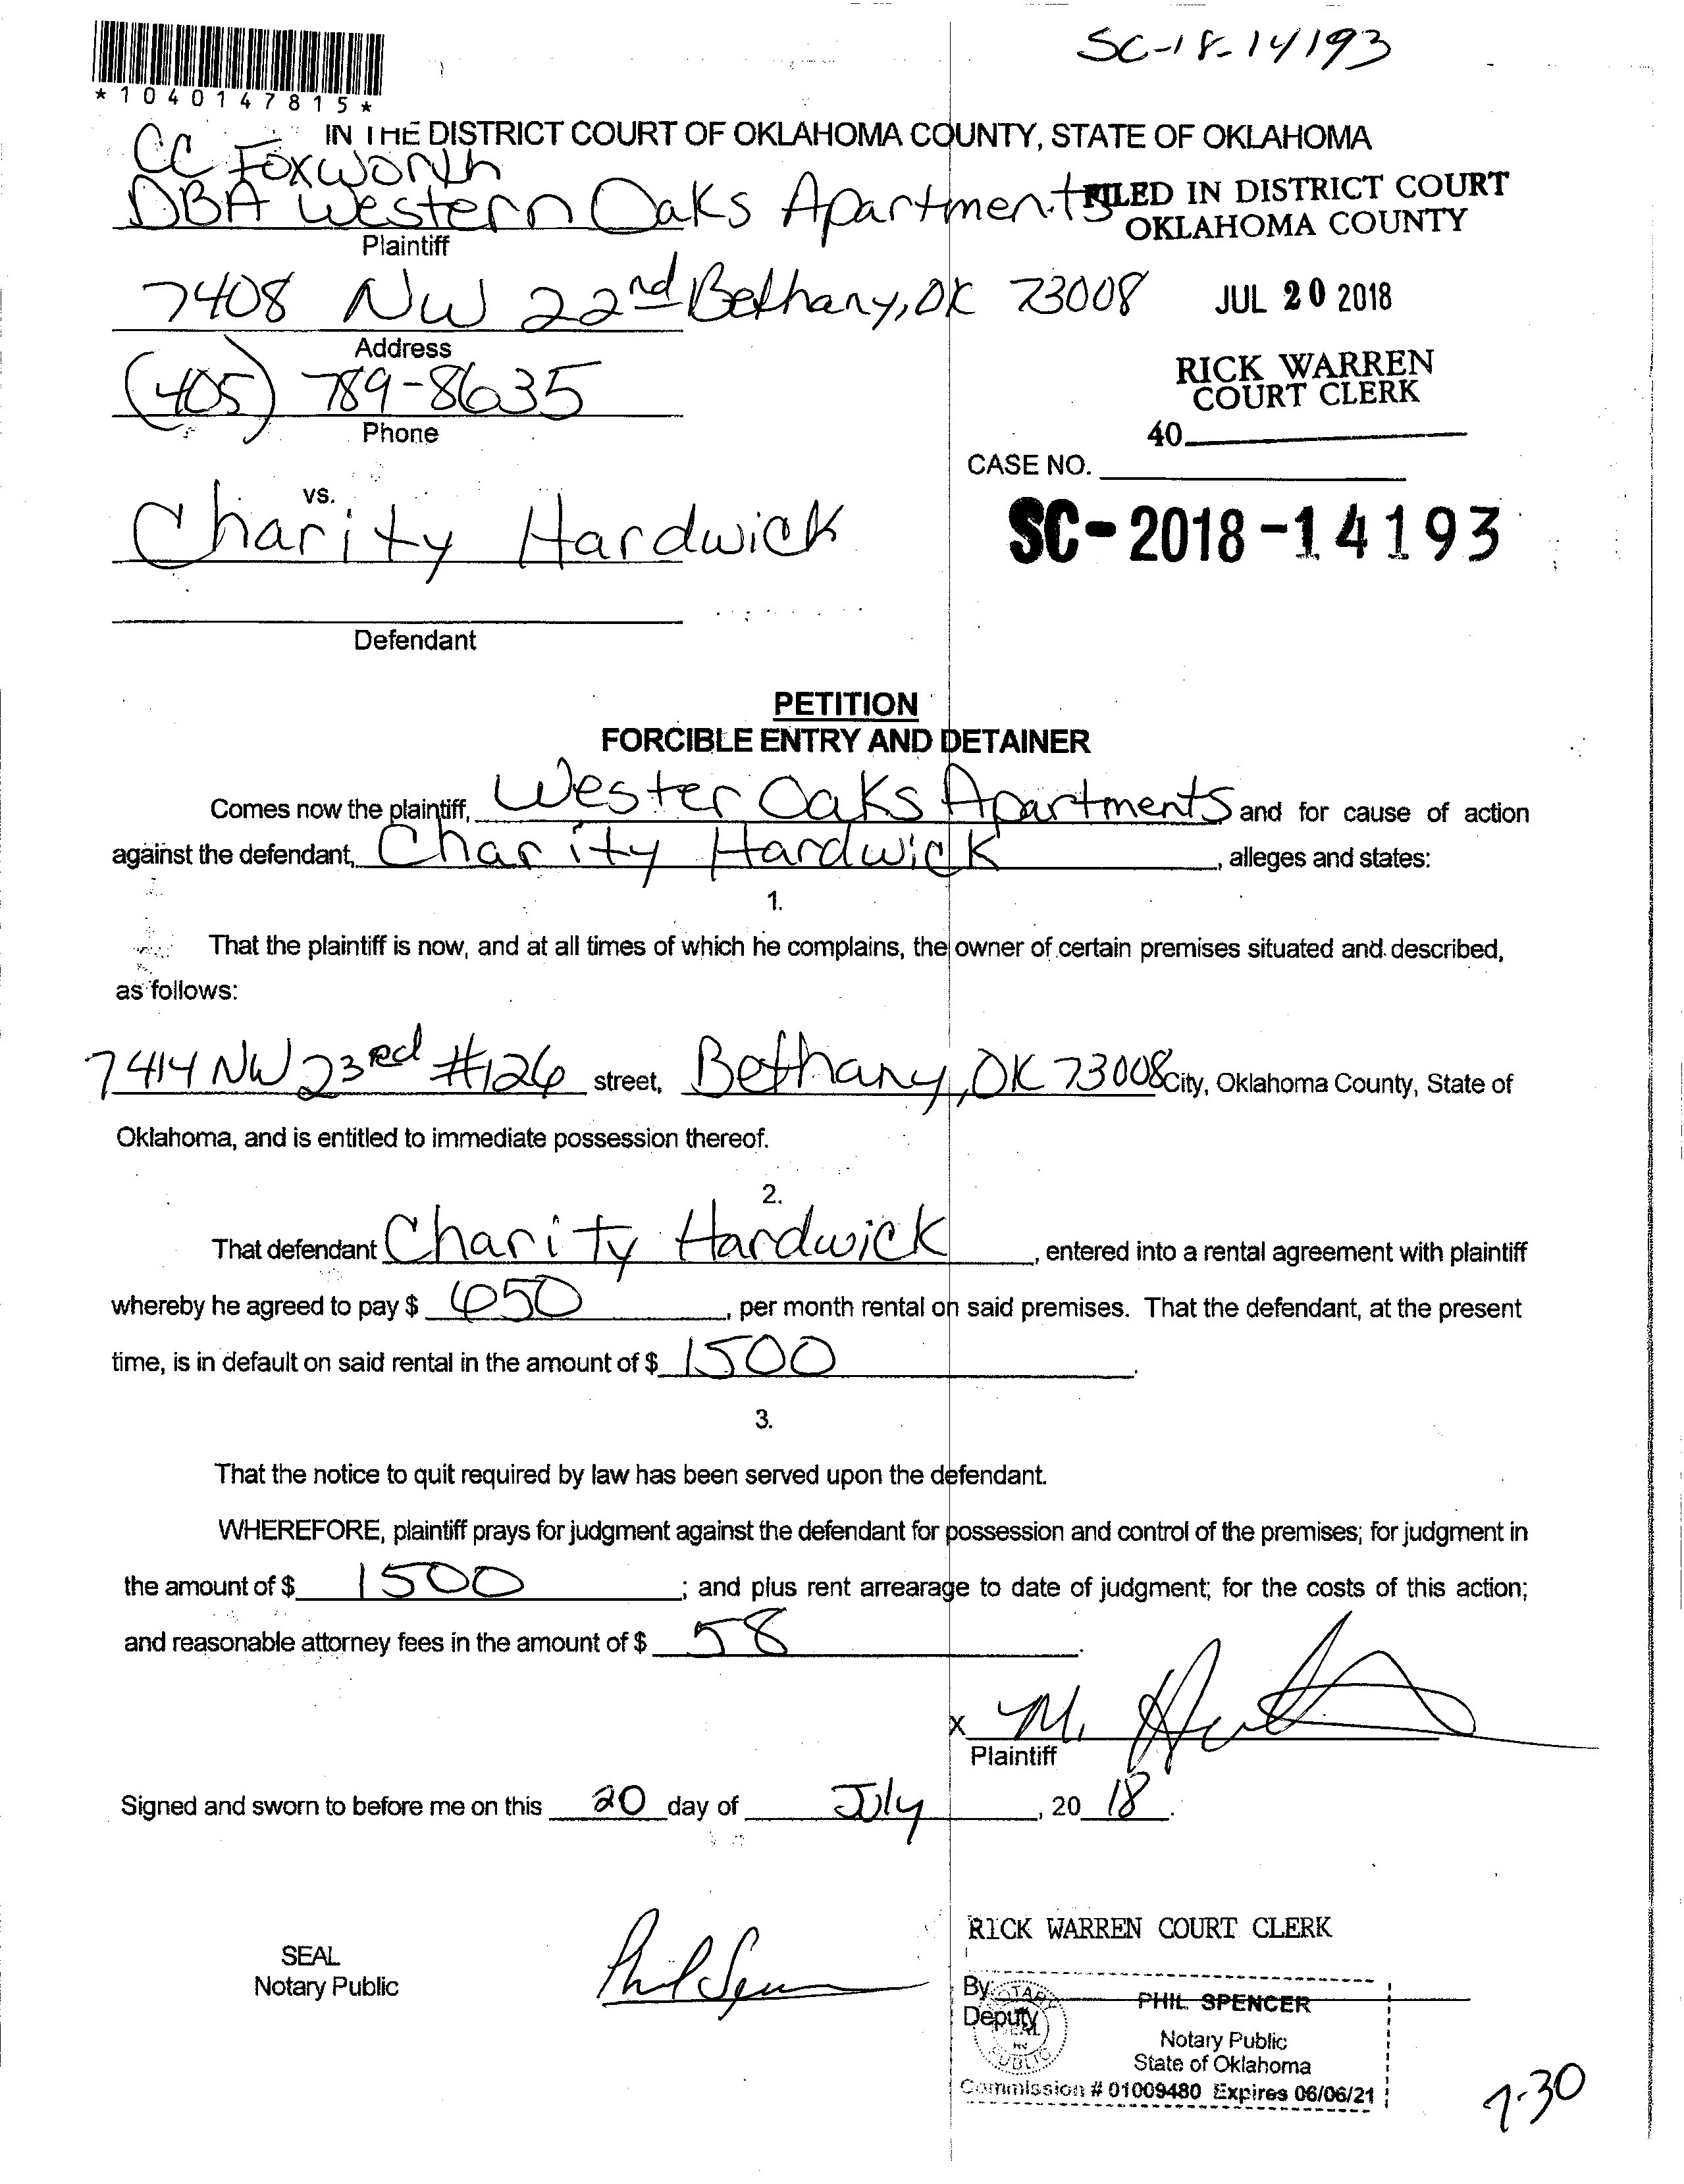 SC-18-14193
*1040147815*
IN THE DISTRICT COURT OF OKLAHOMA COUNTY, STATE OF OKLAHOMA
CC Foxworth
DBA Western Oaks Apartments
FILED IN DISTRICT COURT
OKLAHOMA COUNTY
Plaintiff
7408 NW 22nd Bethany, OK 73008
JUL 20 2018
Address
RICK WARREN
COURT CLERK
(405) 789-8635
Phone
40
CASE NO.
vs.
Charity Hardwick
SC-2018-14193
Defendant
PETITION
FORCIBLE ENTRY AND DETAINER
Comes now the plaintiff, Wester Oaks Apartments and for cause of action
against the defendant, Charity Hardwick, alleges and states:
1.
That the plaintiff is now, and at all times of which he complains, the owner of certain premises situated and described,
as follows:
7414 NW 23rd #126 street, Bethany, OK 73008 City, Oklahoma County, State of
Oklahoma, and is entitled to immediate possession thereof.
2.
That defendant Charity Hardwick, entered into a rental agreement with plaintiff
whereby he agreed to pay $ 650, per month rental on said premises. That the defendant, at the present
time, is in default on said rental in the amount of $ 1500.
3.
That the notice to quit required by law has been served upon the defendant.
WHEREFORE, plaintiff prays for judgment against the defendant for possession and control of the premises; for judgment in
the amount of $ 1500; and plus rent arrearage to date of judgment; for the costs of this action;
and reasonable attorney fees in the amount of $ 58.
x M.
Plaintiff
Signed and sworn to before me on this 20 day of July, 20 18.
RICK WARREN COURT CLERK
SEAL
Notary Public
Phil Spencer
By
Deputy
NOTARY
SEAL
PUBLIC
PHIL SPENCER
Notary Public
State of Oklahoma
Commission # 01009480 Expires 06/06/21
7-30